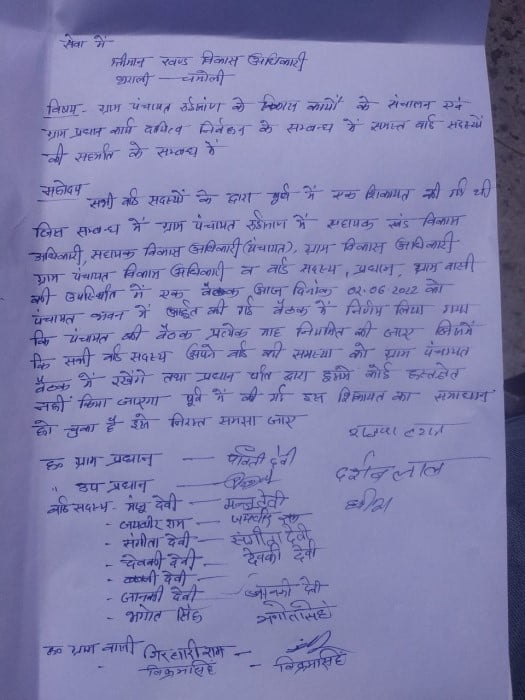 सेवा में
श्रीमान खण्ड विकास अधिकारी
चमोली
विषय- ग्राम पंचायत के विकास कार्यों के संचालन एवं
ग्राम प्रधान कार्य दायित्व निर्वहन के सम्बन्ध में समस्त वार्ड सदस्यों
की सहमति के सम्बन्ध में
महोदय
सभी वार्ड सदस्यों के द्वारा पूर्व में एक शिकायत की गई थी
जिस सम्बन्ध में ग्राम पंचायत में सहायक खंड विकास
अधिकारी, सहायक विकास अधिकारी (पंचायत), ग्राम विकास अधिकारी
ग्राम पंचायत विकास अधिकारी व वार्ड सदस्य, प्रधान, ग्राम वासी
की उपस्थिति में एक बैठक आज दिनांक 02-06-2022 को
पंचायत भवन में आहूत की गई बैठक में निर्णय लिया गया
कि पंचायत की बैठक प्रत्येक माह नियमित की जाए जिसमें
कि सभी वार्ड सदस्य अपने वार्ड की समस्या को ग्राम पंचायत
बैठक में रखेंगे तथा प्रधान पति द्वारा इसमें कोई हस्तक्षेप
नहीं किया जाएगा पूर्व में की गई इस शिकायत का समाधान
हो चुका है इसे निरस्त समझा जाए
ह० ग्राम प्रधान - पार्वती देवी
" उप प्रधान -
दर्शन लाल
वार्ड सदस्य - मंजू देवी - मन्जू देवी
- जयवीर राम -
- संगीता देवी - संगीता देवी
- देवकी देवी - देवकी देवी
- देवी -
- जानकी देवी - जानकी देवी
- भगोत सिंह - भगोत सिंह
ह० ग्राम वासी गिरधारी राम -
विक्रम सिंह - विक्रम सिंह